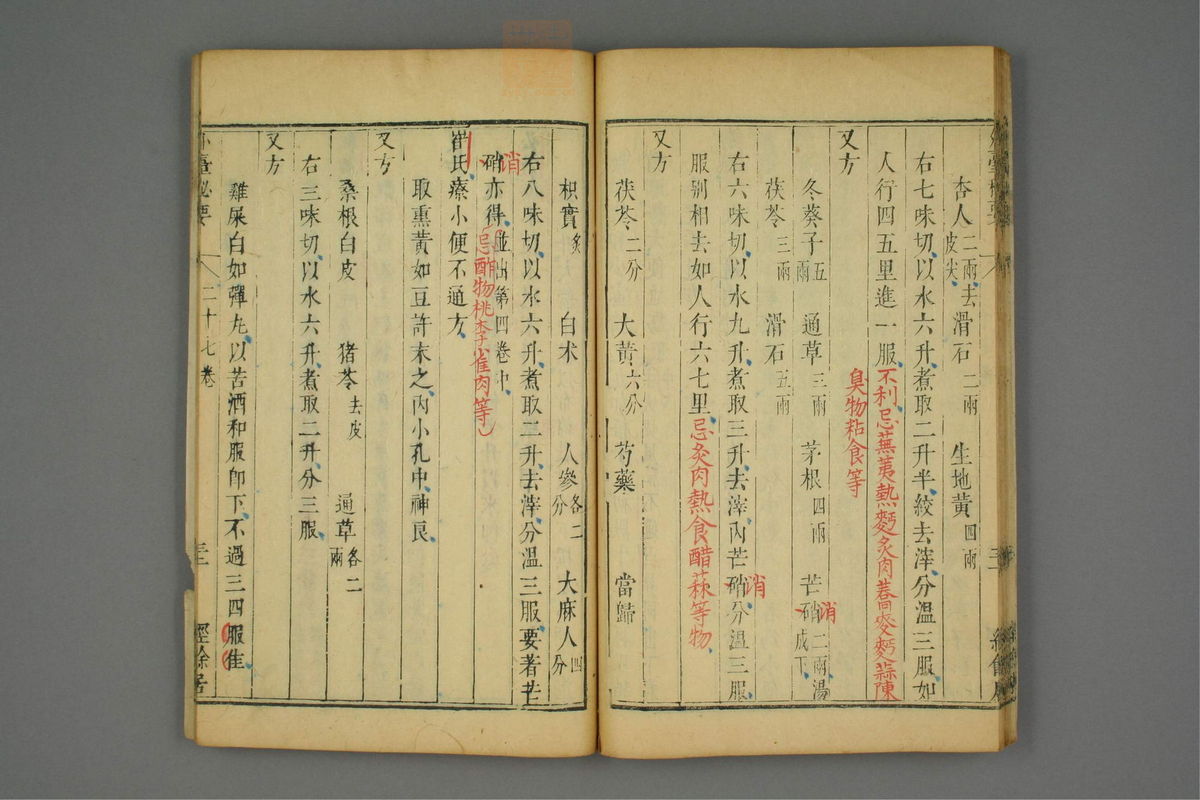 杏人二兩去皮尖 滑石二兩 生地黃四兩
右七味切以水六升煮取二升半絞去滓分溫三服如
人行四五里進一服不利忌蕪荑熱麪炙肉蕎麥麪蒜陳
臭物粘食等
又方
冬葵子五兩 通草三兩 茅根四兩 芒硝消二兩湯成下
茯苓三兩 滑石五兩
右六味切以水九升煮取三升去滓內芒硝消分溫三服
服别相去如人行六七里忌炙肉熱食醋蒜等物
又方
茯苓二分 大黃六分 芍藥 當歸
枳實炙 白术 人參各二分 大麻人四分
右八味切以水六升煮取二升去滓分溫三服要著芒
硝消亦得並出第四卷中忌酢物桃李雀肉等
崔氏療小便不通方
取熏黃如豆許末之內小孔中神良
又方
桑根白皮 猪苓去皮 通草各二兩
右三味切以水六升煮取二升分三服
又方
雞屎白如彈丸以苦酒和服即下不過三四服佳
外臺秘要 二十七卷 經餘居